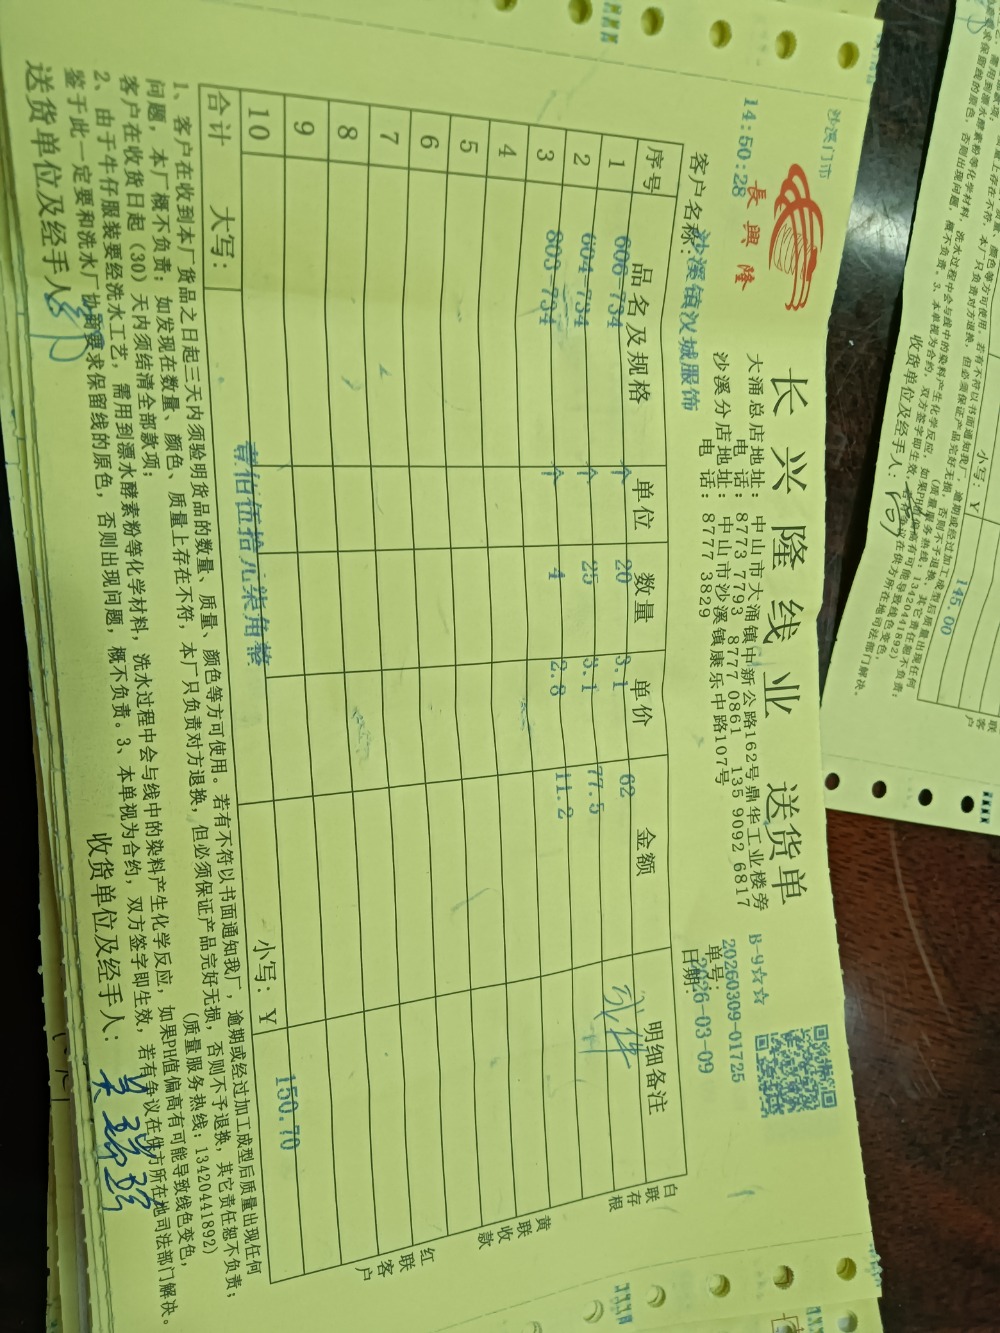 沙溪门市
14:50:28
長興隆
长兴隆线业 送货单
大涌总店地址：中山市大涌镇中新公路162号鼎华工业楼旁
电 话：8773 7793 8777 0861 135 9092 6817
沙溪分店地址：中山市沙溪镇康乐中路107号
电 话：8777 3829
B-9☆☆
单号：20260309-01725
日期：2026-03-09
客户名称：沙溪镇汉城服饰
序号 品名及规格 单位 数量 单价 金额 明细备注
1 606-734 个 20 3.1 62
2 604-734 个 25 3.1 77.5
3 803-734 个 4 2.8 11.2
4
5
6
7
8
9
10
合计 大写：壹佰伍拾元柒角整 小写：￥ 150.70
白联存根
黄联收款
红联客户
1、客户在收到本厂货品之日起三天内须验明货品的数量、质量、颜色等方可使用。若有不符以书面通知我厂，逾期或经过加工成型后质量出现任何
问题，本厂概不负责；如发现在数量、颜色、质量上存在不符，本厂只负责对方退换，但必须保证产品完好无损，否则不予退换，其它责任恕不负责；
客户在收货日起（30）天内须结清全部款项；（质量服务热线：13420441892）
2、由于牛仔服装要经洗水工艺，需用到漂水酵素粉等化学材料，洗水过程中会与线中的染料产生化学反应，如果PH值偏高有可能导致线色变色，
鉴于此一定要和洗水厂协商要求保留线的原色，否则出现问题，概不负责。3、本单视为合约，双方签字即生效，若有争议在供方所在地司法部门解决。
送货单位及经手人：
收货单位及经手人：
小写：￥ 145.00
收货单位及经手人：